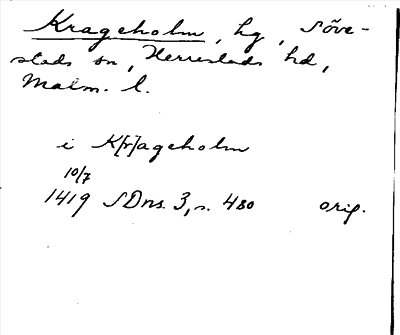 Krageholm, hg, Söve-
stads sn, Herrestads hd,
Malm. l.
i K[r]ageholm
10/7
1419 SDns. 3, s. 480 orig.